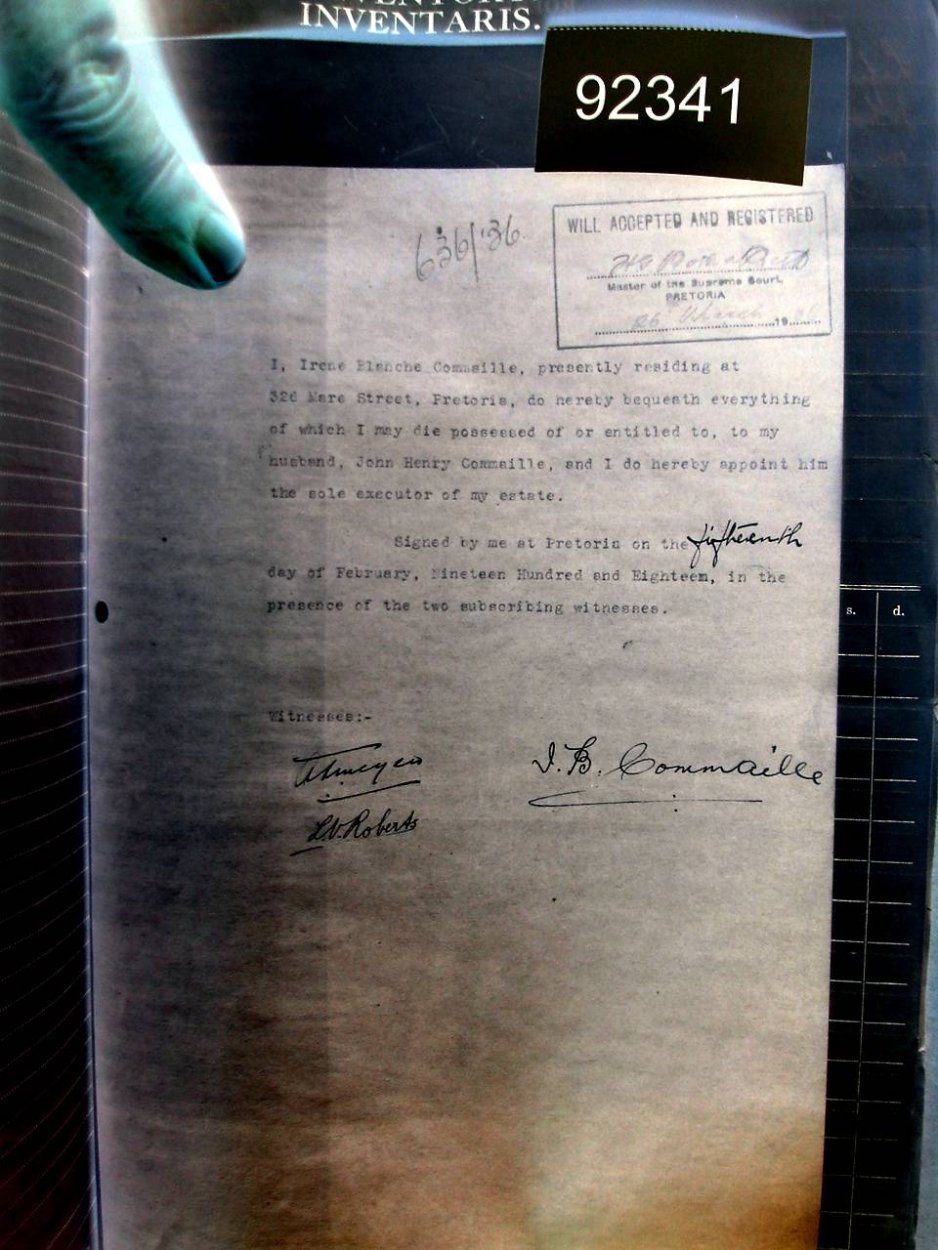 INVENTARIS.
92341
636/'36
WILL ACCEPTED AND REGISTERED
Master of the Supreme Court,
PRETORIA
26 March 1936
I, Irene Blanche Commaille, presently residing at
326 Mare Street, Pretoria, do hereby bequeath everything
of which I may die possessed of or entitled to, to my
husband, John Henry Commaille, and I do hereby appoint him
the sole executor of my estate.
Signed by me at Pretoria on the fifteenth
day of February, Nineteen Hundred and Eighteen, in the
presence of the two subscribing witnesses.
s. d.
Witnesses:-
I. B. Commaille
L.V. Roberts